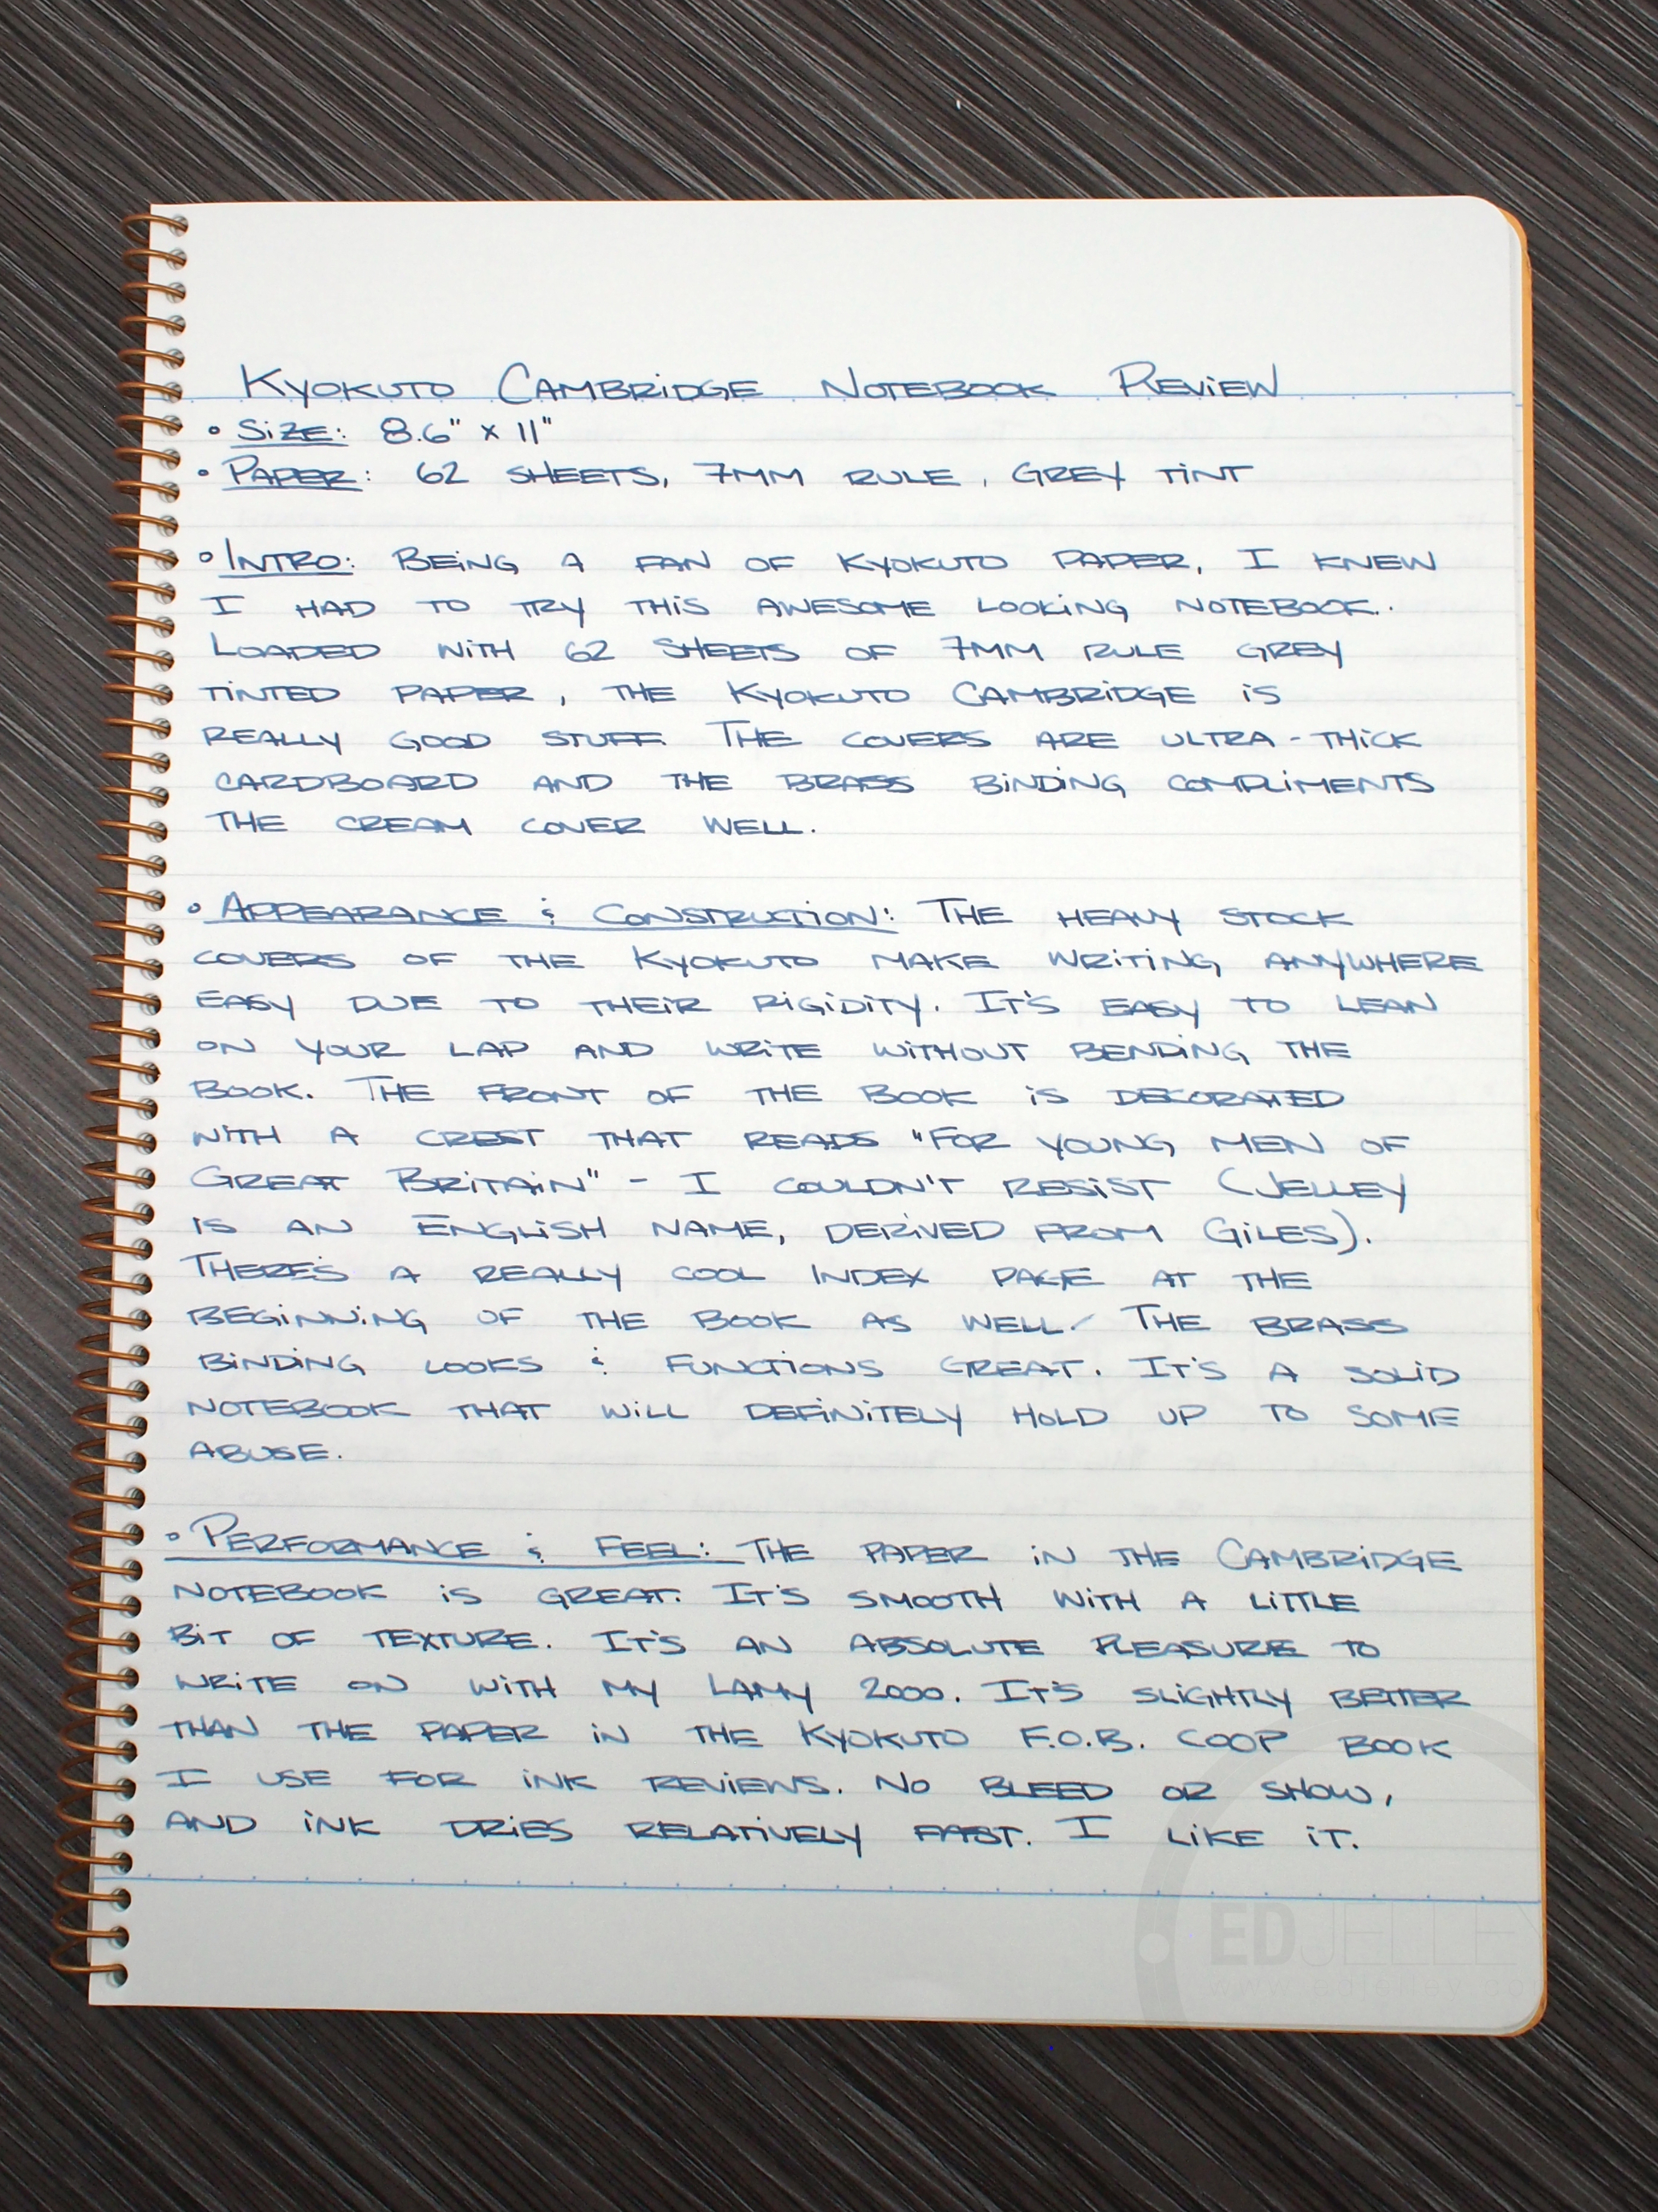 Kyokuto Cambridge Notebook Review
• Size: 8.6" x 11"
• Paper: 62 sheets, 7mm rule, grey tint
• Intro: Being a fan of Kyokuto paper, I knew
I had to try this awesome looking notebook.
Loaded with 62 sheets of 7mm rule grey
tinted paper, the Kyokuto Cambridge is
really good stuff. The covers are ultra-thick
cardboard and the brass binding compliments
the cream cover well.
• Appearance & Construction: The heavy stock
covers of the Kyokuto make writing anywhere
easy due to their rigidity. It's easy to lean
on your lap and write without bending the
book. The front of the book is decorated
with a crest that reads "For young men of
Great Britain" - I couldn't resist (Jelley
is an English name, derived from Giles).
There's a really cool index page at the
beginning of the book as well. The brass
binding looks & functions great. It's a solid
notebook that will definitely hold up to some
abuse.
• Performance & Feel: The paper in the Cambridge
notebook is great. It's smooth with a little
bit of texture. It's an absolute pleasure to
write on with my Lamy 2000. It's slightly better
than the paper in the Kyokuto F.O.B. COOP book
I use for ink reviews. No bleed or show,
and ink dries relatively fast. I like it.
EDJELLEY
www.edjelley.co